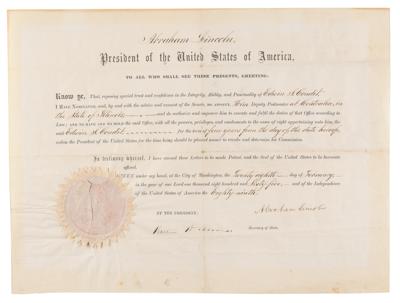 Abraham Lincoln,
President of the United States of America,
TO ALL WHO SHALL SEE THESE PRESENTS, GREETING:
Know ye, That, reposing special trust and confidence in the Integrity, Ability, and Punctuality of Edwin A. Condit
I HAVE NOMINATED, and, by and with the advice and consent of the Senate, DO APPOINT, Him Deputy Postmaster at
the State of Illinois and do authorize and empower him to execute and fulfil the duties of that Office according to
Law; and TO HAVE AND TO HOLD the said Office, with all the powers, privileges, and emoluments to the same of right appertaining unto him, the
said Edwin A. Condit for the term of four years from the day of the date hereof,
unless the President of the United States for the time being should be pleased sooner to revoke and determine this Commission.
In testimony whereof, I have caused these Letters to be made Patent, and the Seal of the United States to be hereunto
affixed.
under my hand, at the City of Washington, the Twenty eighth day of February
in the year of our Lord one thousand eight hundred and Sixty five, and of the Independence
of the United States of America the Eighty-ninth.
BY THE PRESIDENT:
Abraham Lincoln
Secretary of State.